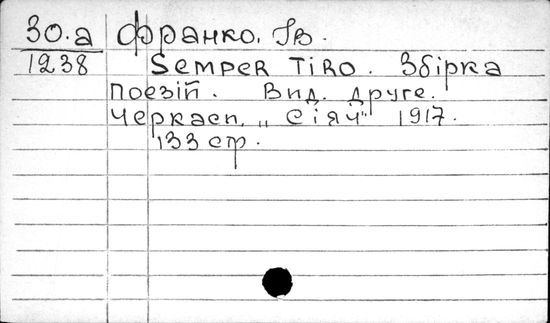 30.а Франко. Ів.
1238 Semper Tiro. Збірка
Поезій. Вид. друге.
Черкаси. „Сіяч" 1917.
133 стр.